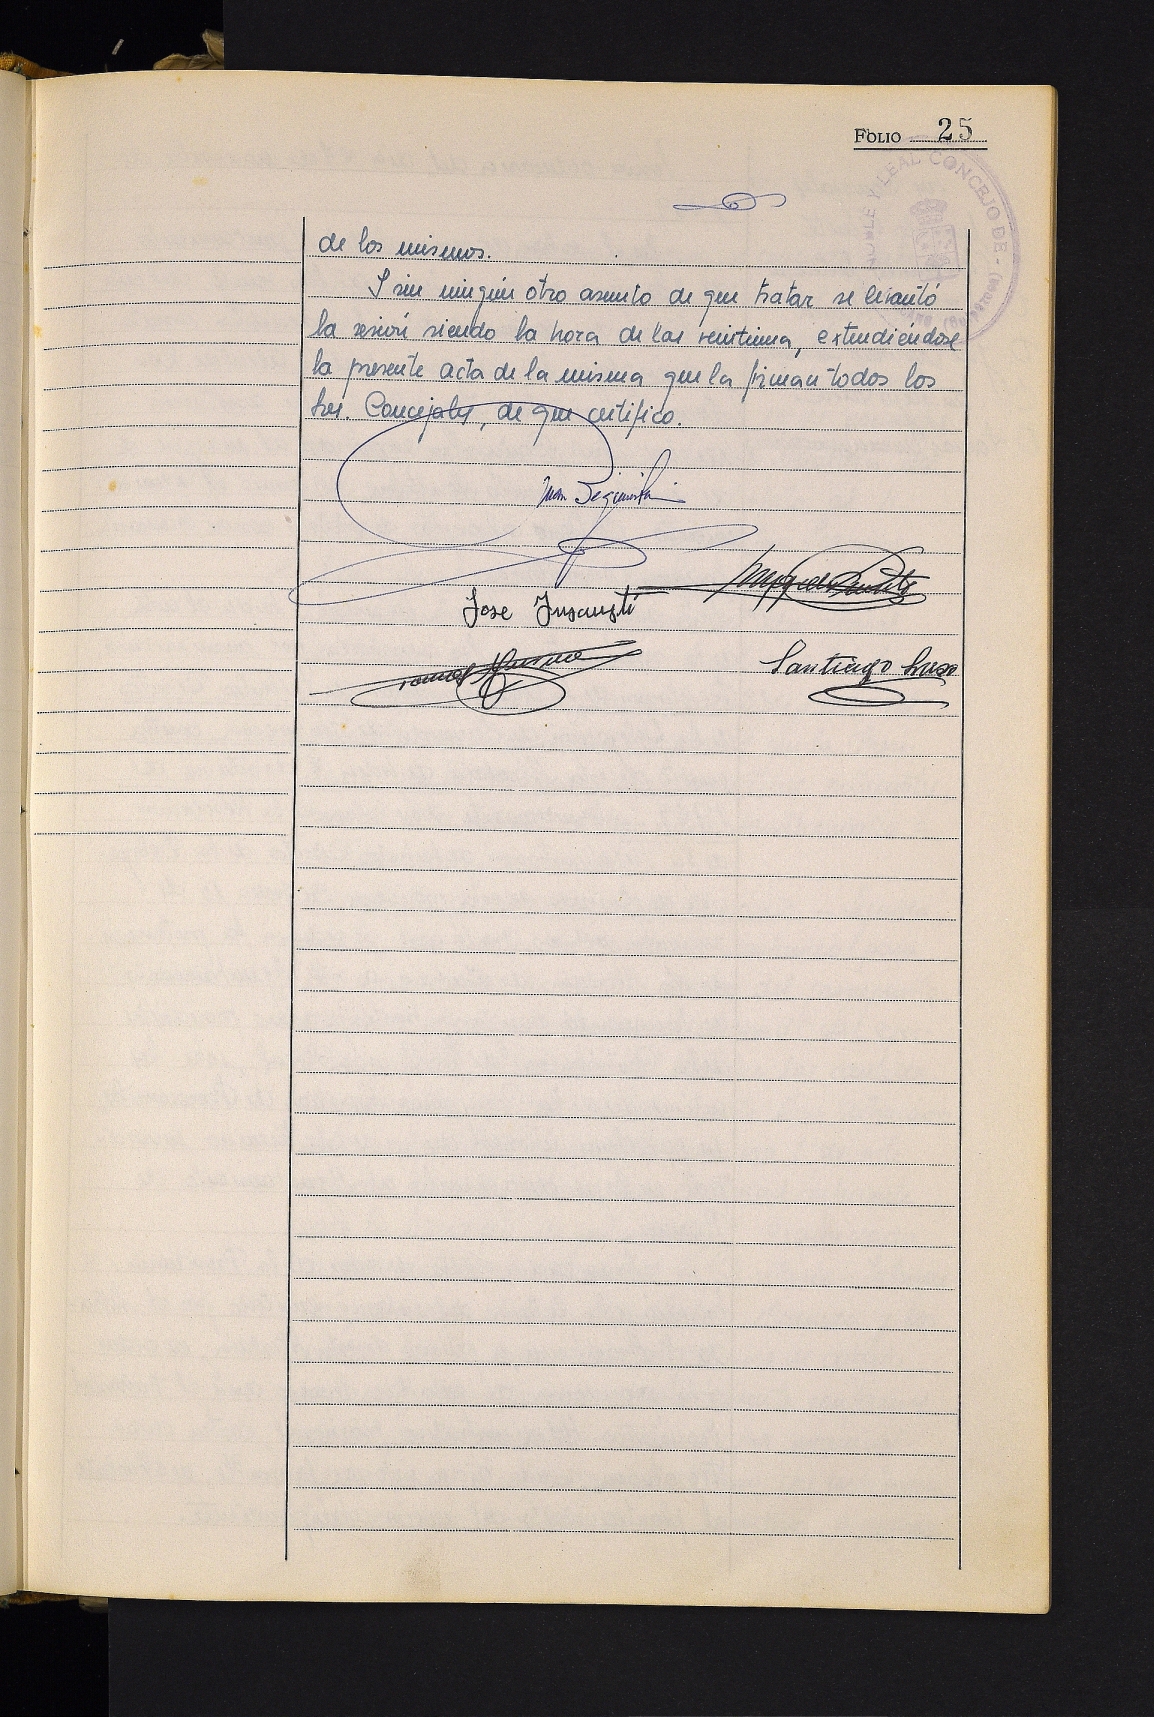 FOLIO 25
NOBLE Y LEAL CONCEJO DE
(Guipuzcoa)
de los mismos.
I sin ningún otro asunto de que tratar se levantó
la sesión siendo la hora de las veintiuna, extendiéndose
la presente acta de la misma que la firman todos los
Sres. Concejales, de que certifico.
Juan
Jose Insausti
Santiago